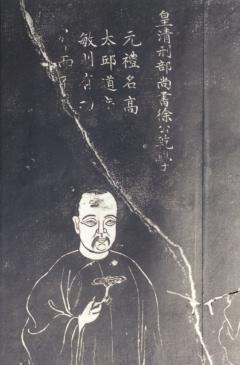 皇清刑部尚書徐公乾學
元禮名高
太邱道
敏